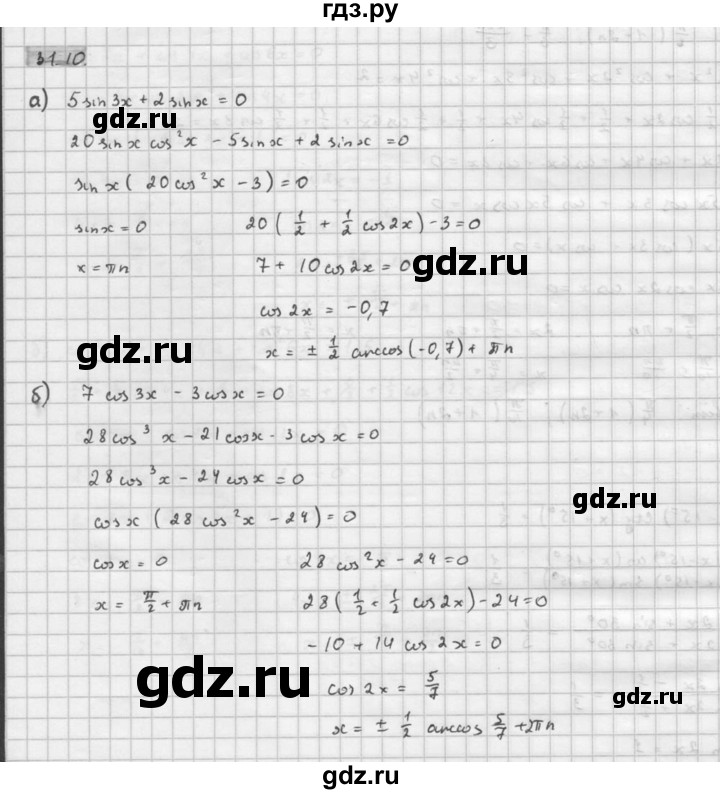 гдз.ру
31.10.
а) 5 sin 3x + 2 sin x = 0
gdz.ru
20 sin x cos² x - 5 sin x + 2 sin x = 0
sin x ( 20 cos² x - 3 ) = 0
sin x = 0 20 ( 1/2 + 1/2 cos 2x ) - 3 = 0
x = πn 7 + 10 cos 2x = 0
gdz.ru
cos 2x = -0,7
gdz.ru
x = ± 1/2 arccos (-0,7) + πn
б) 7 cos 3x - 3 cos x = 0
28 cos³ x - 21 cos x - 3 cos x = 0
28 cos³ x - 24 cos x = 0
gdz.ru
cos x ( 28 cos² x - 24 ) = 0
cos x = 0 28 cos² x - 24 = 0
x = π/2 + πn 28 ( 1/2 + 1/2 cos 2x ) - 24 = 0
-10 + 14 cos 2x = 0
gdz.ru
cos 2x = 5/7
gdz.ru
x = ± 1/2 arccos 5/7 + 2πn
gdz.ru